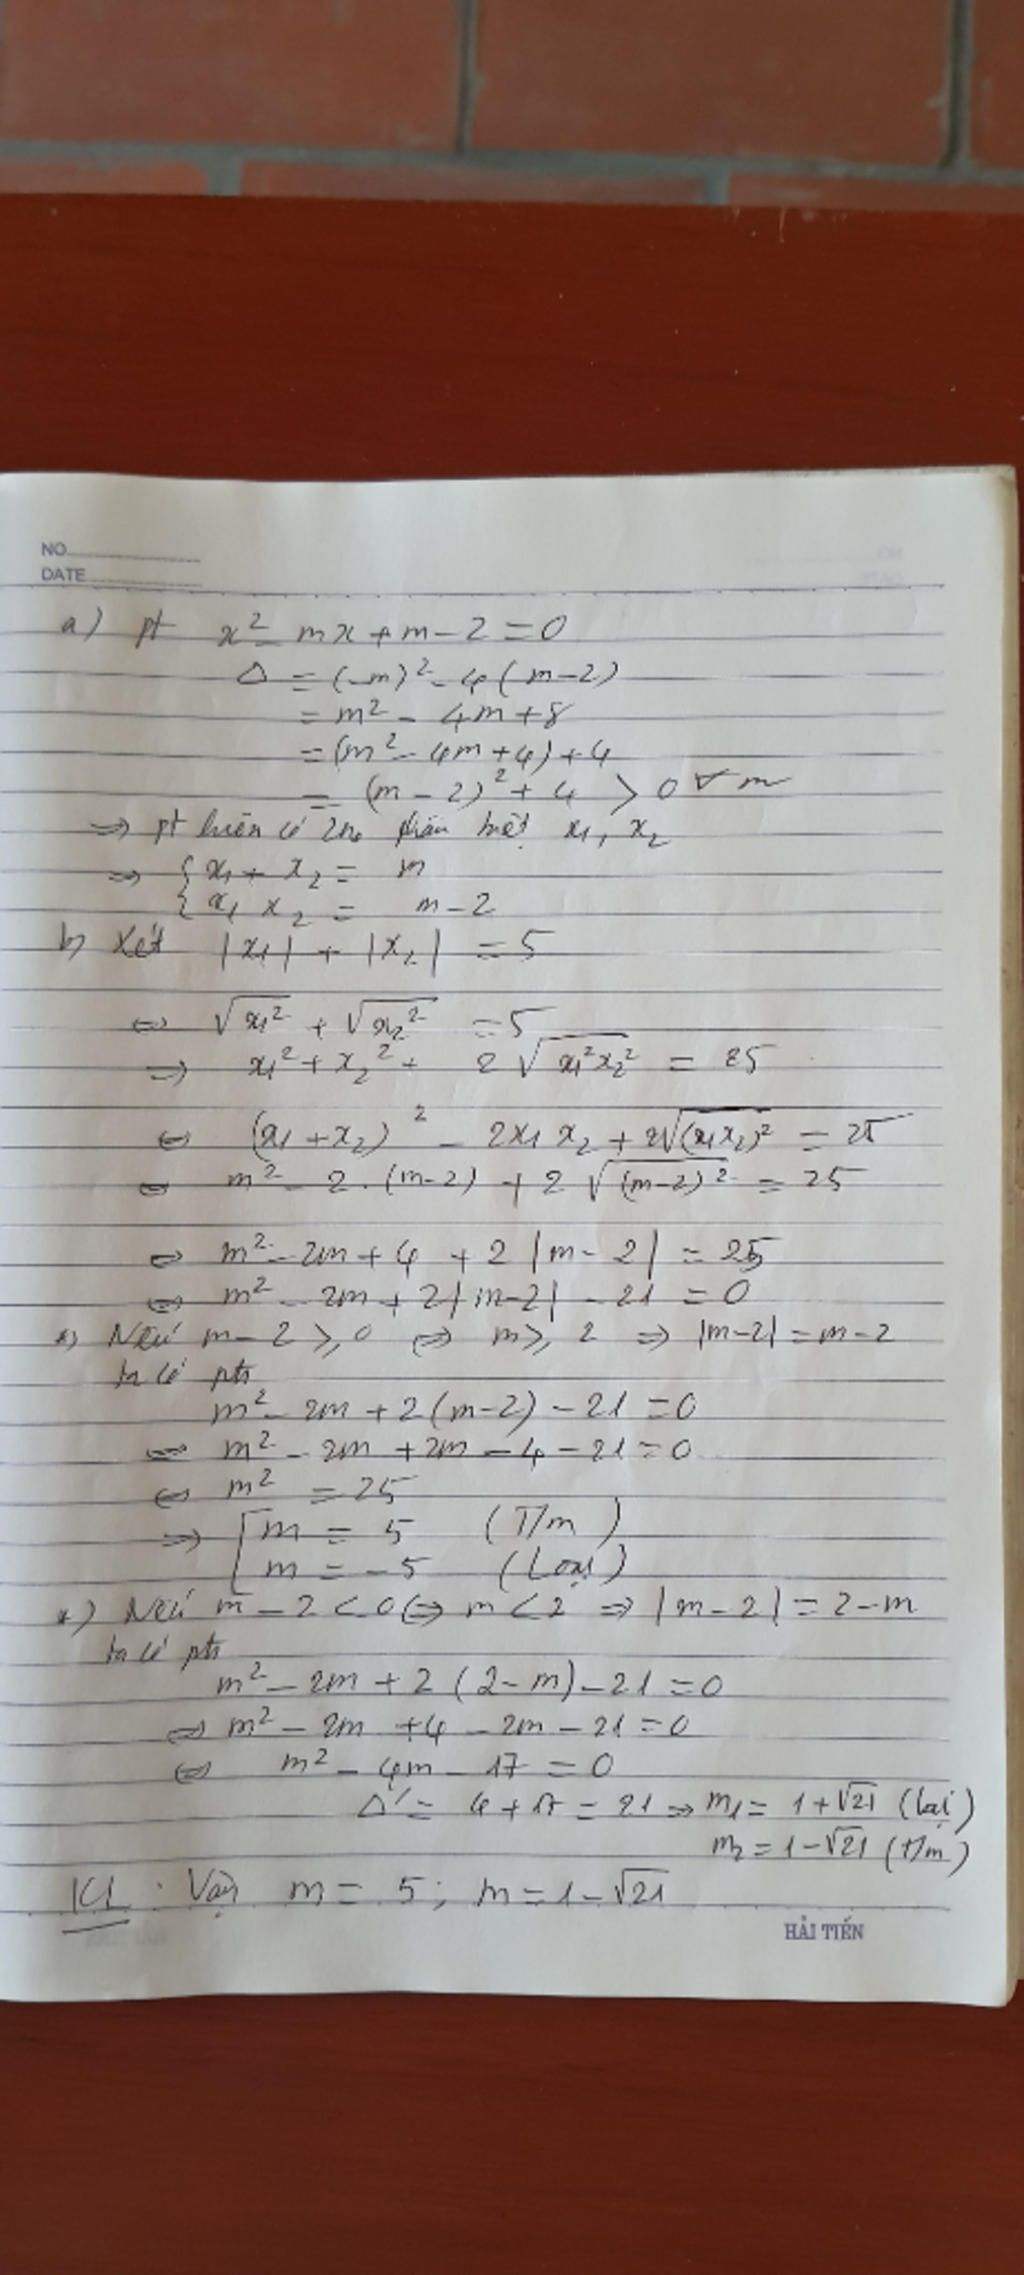 NO.
DATE
a) pt x² - mx + m - 2 = 0
Δ = (-m)² - 4(m-2)
= m² - 4m + 8
= (m² - 4m + 4) + 4
= (m - 2)² + 4 > 0 ∀ m
=> pt luôn có 2n₀ phân biệt x₁, x₂
=> { x₁ + x₂ = m
{ x₁ x₂ = m - 2
b) Xét |x₁| + |x₂| = 5
<=> √x₁² + √x₂² = 5
=> x₁² + x₂² + 2√x₁²x₂² = 25
<=> (x₁ + x₂)² - 2x₁x₂ + 2√(x₁x₂)² = 25
<=> m² - 2.(m-2) + 2√(m-2)² = 25
<=> m² - 2m + 4 + 2|m - 2| = 25
<=> m² - 2m + 2|m-2| - 21 = 0
*) Nếu m - 2 ≥ 0 <=> m ≥ 2 => |m-2| = m - 2
ta có ptr
m² - 2m + 2(m-2) - 21 = 0
<=> m² - 2m + 2m - 4 - 21 = 0
<=> m² = 25
=> [ m = 5 (T/m)
[ m = -5 (Loại)
*) Nếu m - 2 < 0 <=> m < 2 => |m - 2| = 2 - m
ta có ptr
m² - 2m + 2(2 - m) - 21 = 0
<=> m² - 2m + 4 - 2m - 21 = 0
<=> m² - 4m - 17 = 0
Δ' = 4 + 17 = 21 => m₁ = 1 + √21 (loại)
m₂ = 1 - √21 (T/m)
KL : Vậy m = 5; m = 1 - √21
HẢI TIẾN